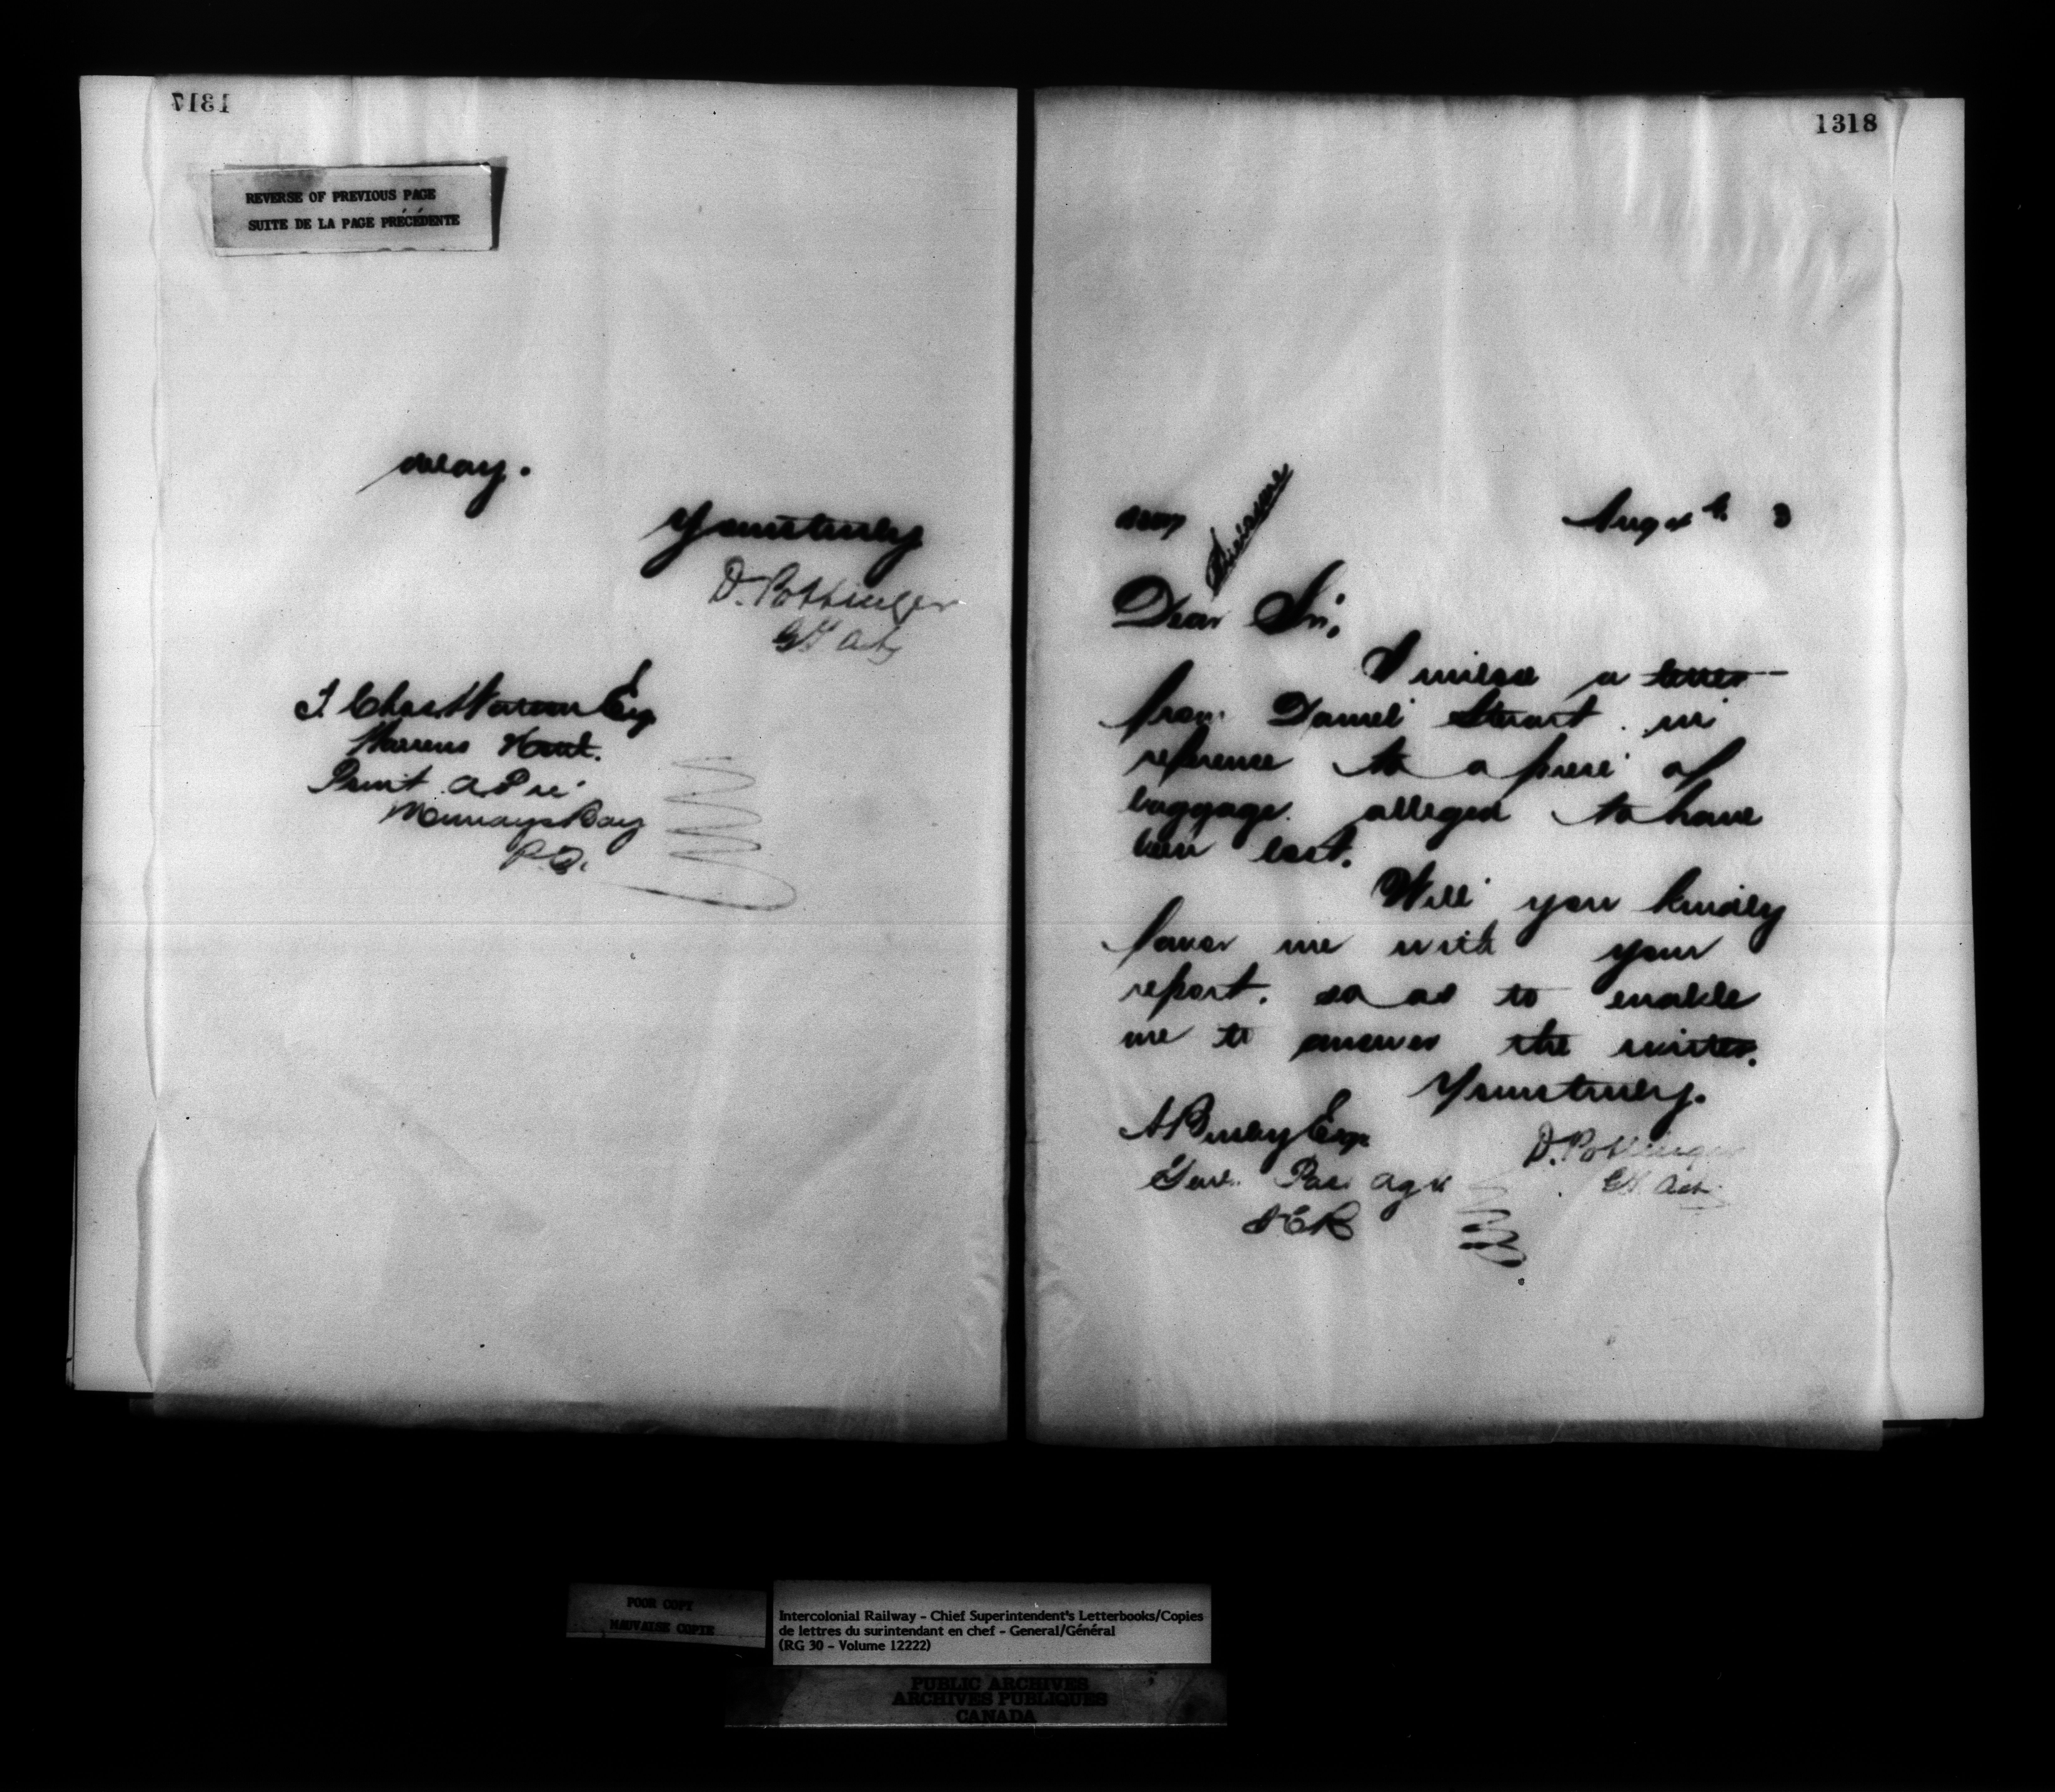 1317
REVERSE OF PREVIOUS PAGE
SUITE DE LA PAGE PRÉCÉDENTE
Yours truly
D. Pottinger
J. Chas Warren Esq
Warrens
Point a Pic
Murrays Bay
P.Q.
1318
Aug
Dear Sir,
I enclose a letter
from Daniel Stewart in
reference to a piece of
baggage alleged to have
been lost.
Will you kindly
favor me with your
report. so as to enable
me to answer the writer.
Yours truly.
D. Pottinger
A Busby Esq
Gen. Pas. Agt
ICR
POOR COPY
MAUVAISE COPIE
Intercolonial Railway - Chief Superintendent's Letterbooks/Copies
de lettres du surintendant en chef - General/Général
(RG 30 - Volume 12222)
PUBLIC ARCHIVES
ARCHIVES PUBLIQUES
CANADA